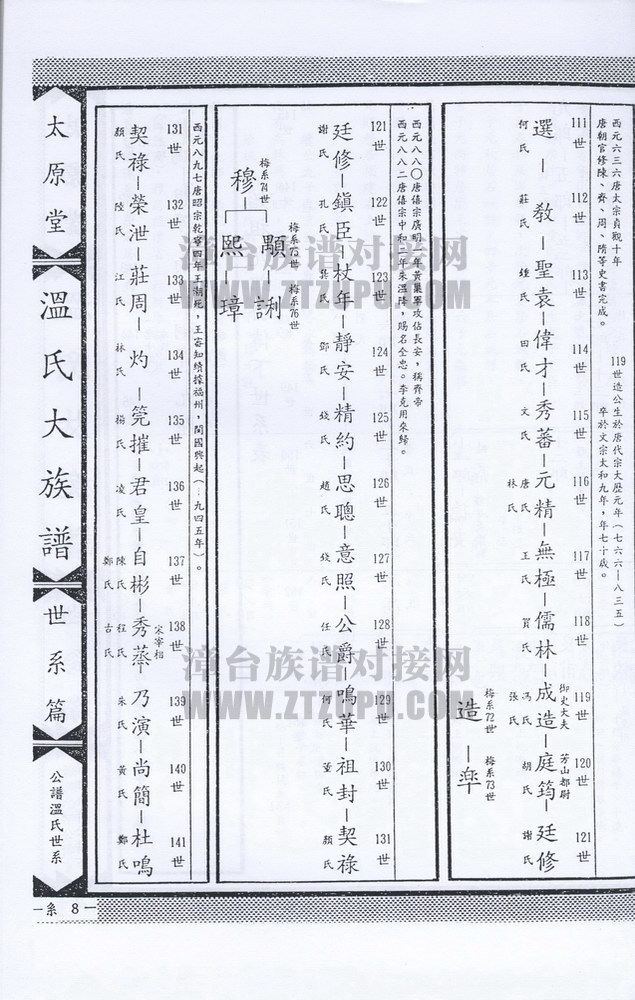 西元六三六唐太宗貞觀十年
唐朝官修陳、齊、周、隋等史書完成。
119世造公生於唐代宗大歷元年(七六六—八三五)
卒於文宗太和九年，年七十歲。
111世 112世 113世 114世 115世 116世 117世 118世 119世 120世 121世
御史大夫 芳山都尉
選—教—聖袁—偉才—秀蕃—元精—無極—儒林—成造—庭筠—廷修
何氏 莊氏 鍾氏 田氏 文氏 唐氏 林氏 王氏 賀氏 馮氏 張氏 胡氏 謝氏
梅系72世 梅系73世
造—
西元八八〇唐僖宗廣明一年黃巢軍攻佔長安，稱齊帝
西元八八二唐僖宗中和二年朱溫降，賜名全忠。李克用來歸。
121世 122世 123世 124世 125世 126世 127世 128世 129世 130世 131世
廷修—鎮臣—杖年—靜安—精約—思聰—意照—公爵—鳴華—祖封—契祿
謝氏 孔氏 龔氏 鄧氏 錢氏 趙氏 錢氏 任氏 何氏 董氏 顏氏
梅系74世 梅系75世 梅系76世
穆
顒
熙璋
西元八九七唐昭宗乾寧四年王潮死，王審知續據福州，閩國興起(…九四五年)。
131世 132世 133世 134世 135世 136世 137世 138世 139世 140世 141世
宋宰相
契祿—榮泄—莊周—灼—筦摧—君皇—自彬—秀蒸—乃演—尚簡—杜鳴
顏氏 陸氏 江氏 林氏 楊氏 凌氏 陳氏 鄭氏 程氏 古氏 朱氏 黃氏 鄭氏
太原堂
溫氏大族譜
世系篇
公譜溫氏世系
—系 8—
漳台族谱对接网
WWW.ZTZUPU.COM
漳台族谱对接网
WWW.ZTZUPU.COM